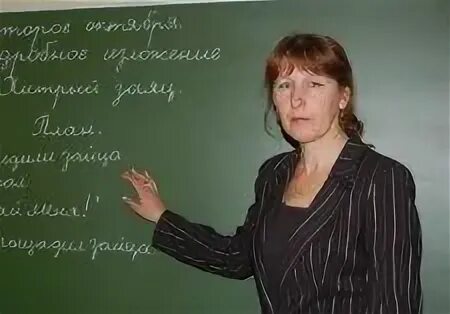 торое октября.
дробное изложение
Хитрый заяц.
План.
едили зайца
ай меня!"
лощадил зайца